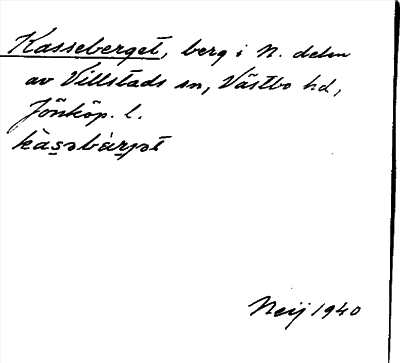 Kasseberget, berg i N. delen
av Villstads sn, Västbo hd,
Jönköp. l.
kàsəbær̀jət
Neij 1940